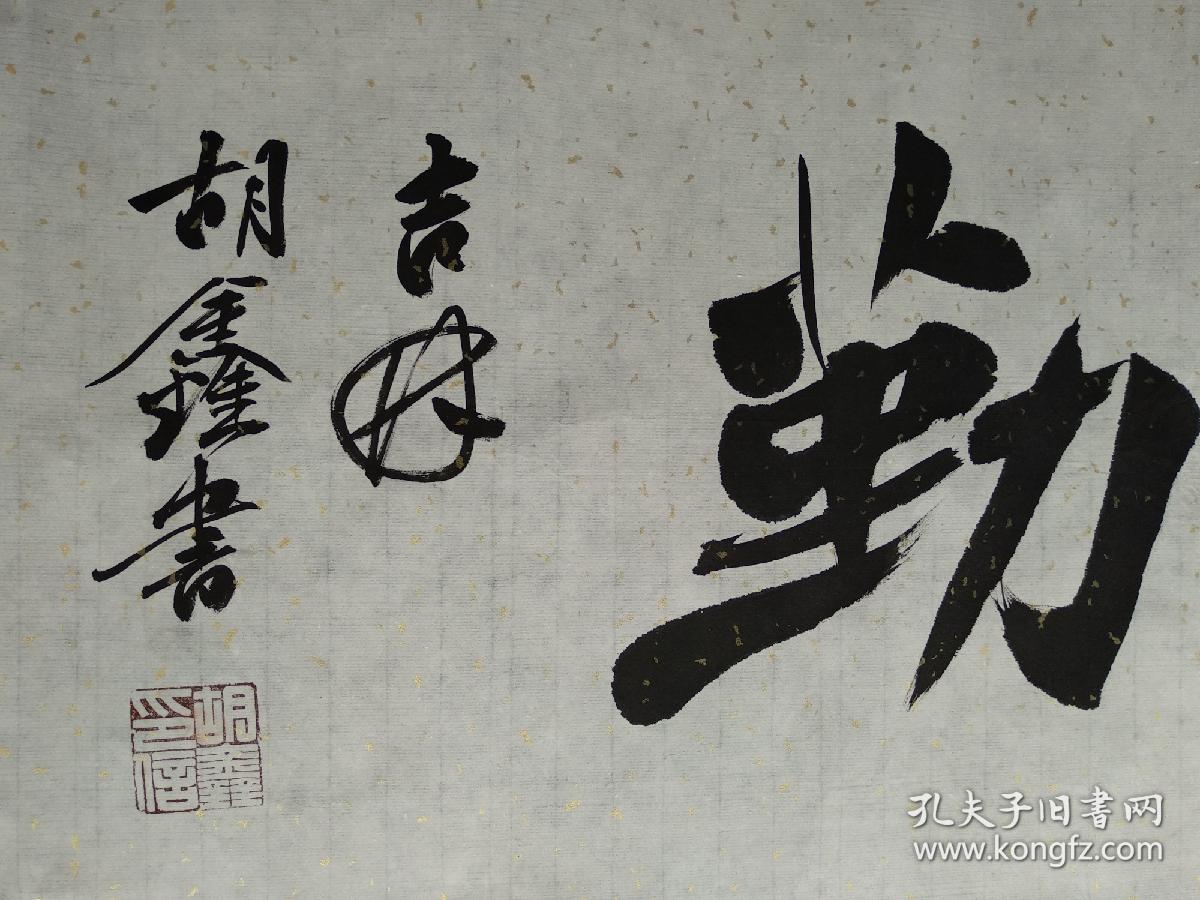 勤
吉林
胡鑫書
胡鑫印信
孔夫子旧书网
www.kongfz.com